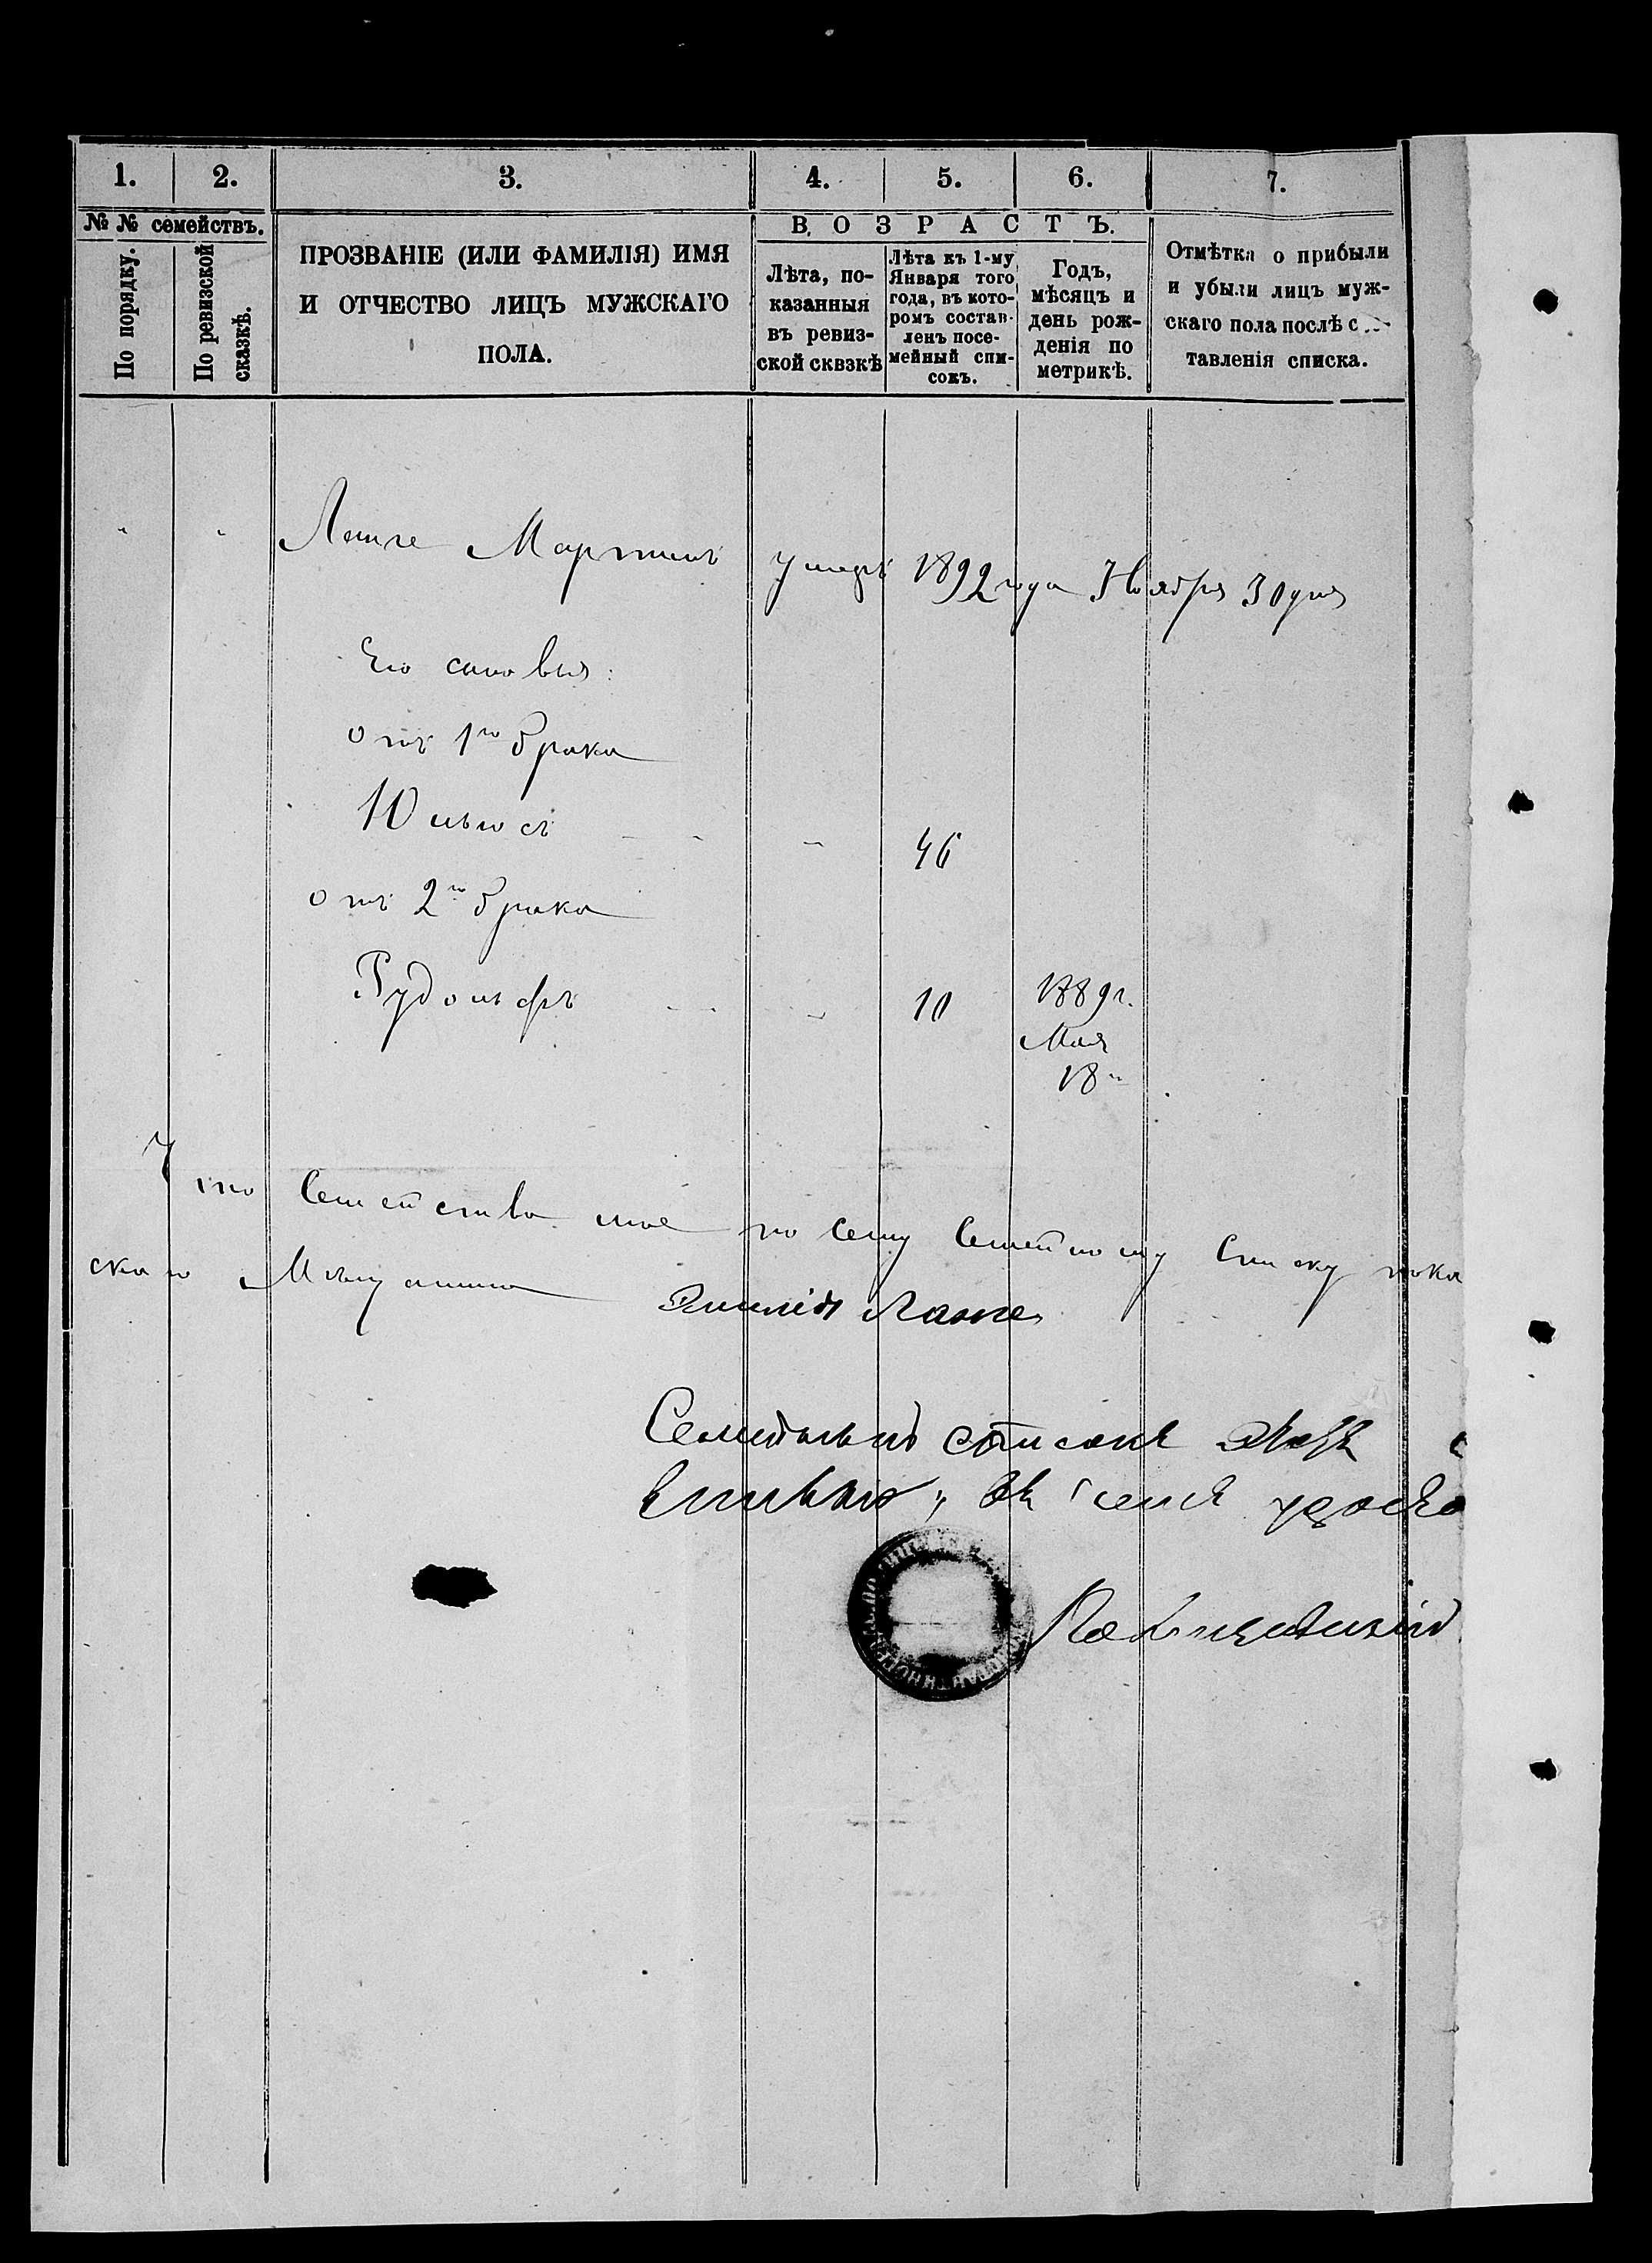 1. 2. 3. 4. 5. 6. 7.
№ № семействъ.
По порядку.
По ревизской сказкѣ.
ПРОЗВАНІЕ (ИЛИ ФАМИЛІЯ) ИМЯ
И ОТЧЕСТВО ЛИЦЪ МУЖСКАГО
ПОЛА.
ВОЗРАСТЪ.
Лѣта, по-
казанныя
въ ревиз-
ской сквзкѣ
Лѣта къ 1-му
Января того
года, въ кото-
ромъ состав-
ленъ посе-
мейный спи-
сокъ.
Годъ,
мѣсяцъ и
день рож-
денія по
метрикѣ.
Отмѣтка о прибыли
и убыли лицъ муж-
скаго пола послѣ с
тавленія списка.
Ланге Мартинъ умеръ 1892 года Ноября 30 дня
Его сыновья:
отъ 1го брака
Юльюсъ 46
отъ 2го брака
Рудольфъ 10 1889 г.
Мая
18
Что Семейство мое по сему Семейному Списку пока
скаго Мѣщанина
Эмилія Ланге
Семейный списокъ